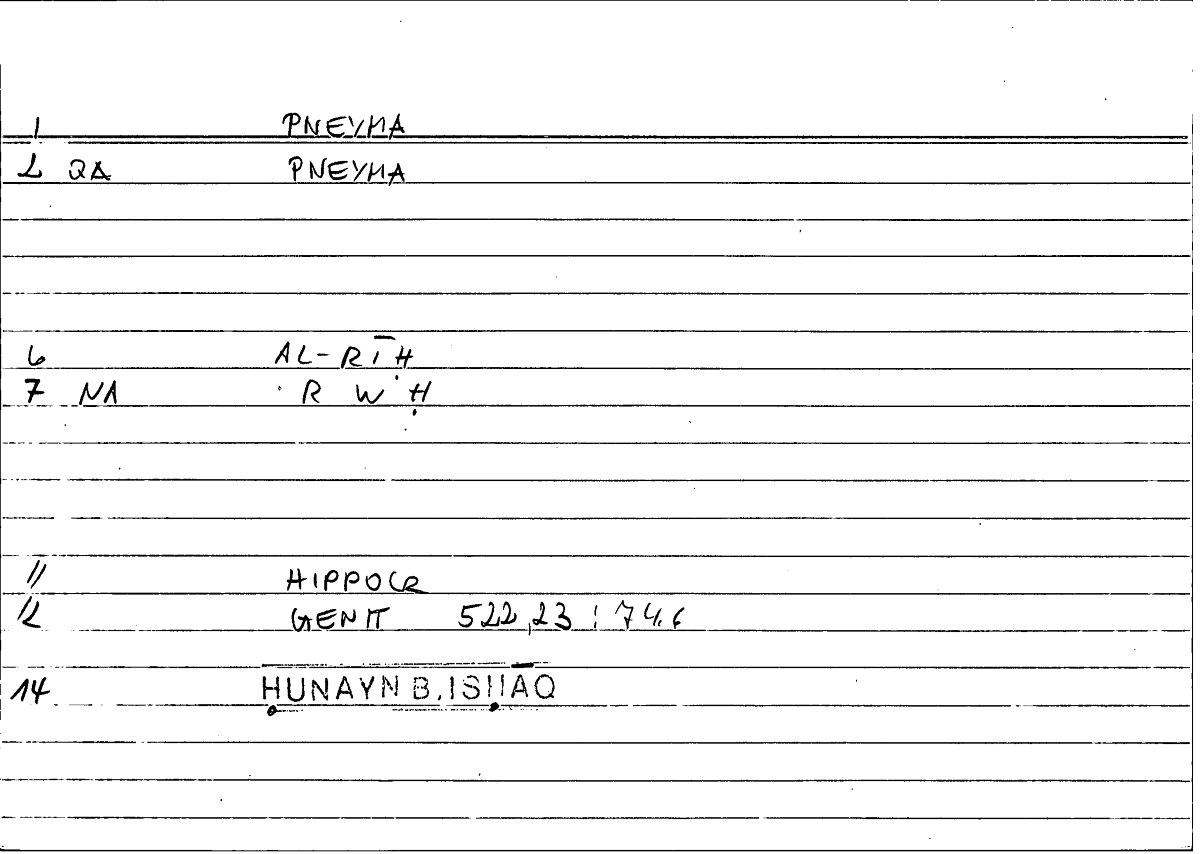 1 PNEYMA
2 QA PNEYMA
6 AL-RĪH
7 NA R W Ḥ
11 HIPPOCR
12 GENIT 522,23 : 74,6
14 ḤUNAYN B. ISḤĀQ